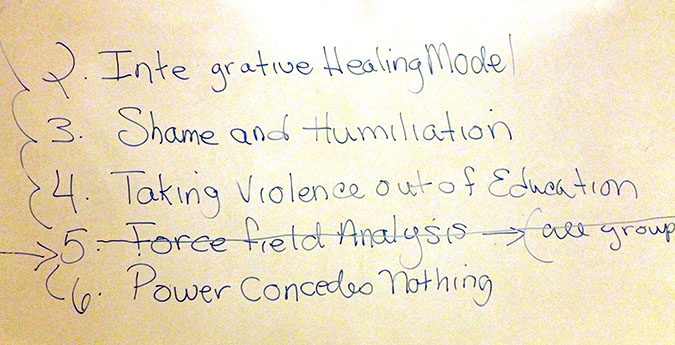 2. Integrative Healing Model
3. Shame and Humiliation
4. Taking Violence out of Education
5. Force field Analysis → (all group
6. Power Concedes Nothing